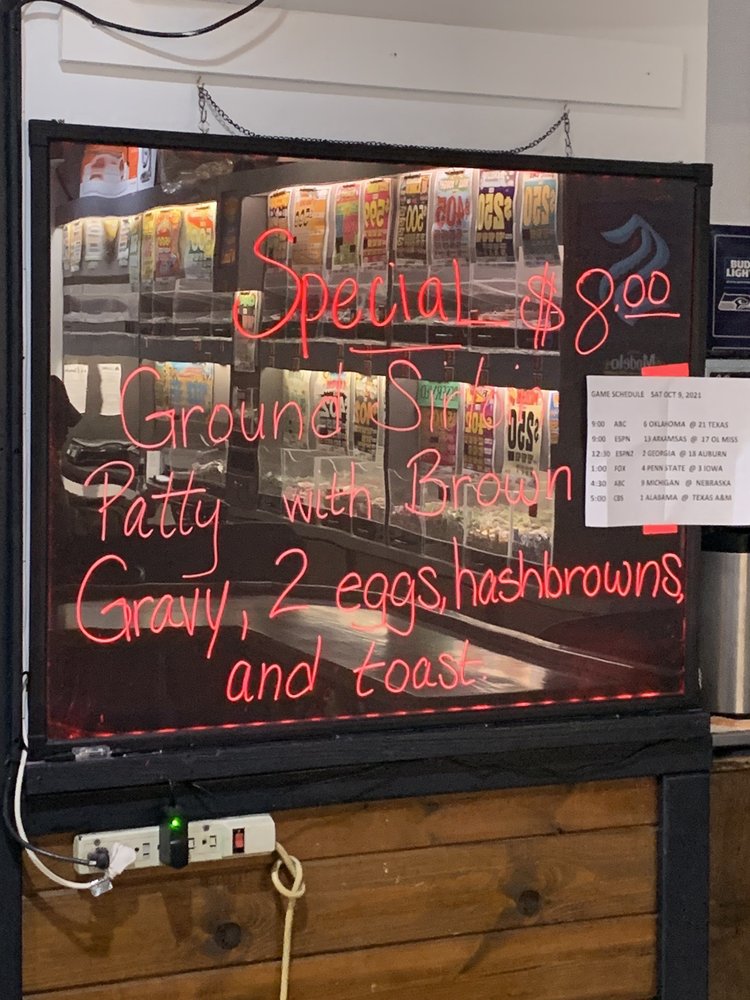 Special $8.00
Ground Sirloin
Patty with Brown
Gravy, 2 eggs, hashbrowns,
and toast.
GAME SCHEDULE SAT OCT 9, 2021
9:00 ABC 6 OKLAHOMA @ 21 TEXAS
9:00 ESPN 13 ARKANSAS @ 17 OL MISS
12:30 ESPN2 2 GEORGIA @ 18 AUBURN
1:00 FOX 4 PENN STATE @ 3 IOWA
4:30 ABC 9 MICHIGAN @ NEBRASKA
5:00 CBS 1 ALABAMA @ TEXAS A&M
BUD
LIGHT
Modelo